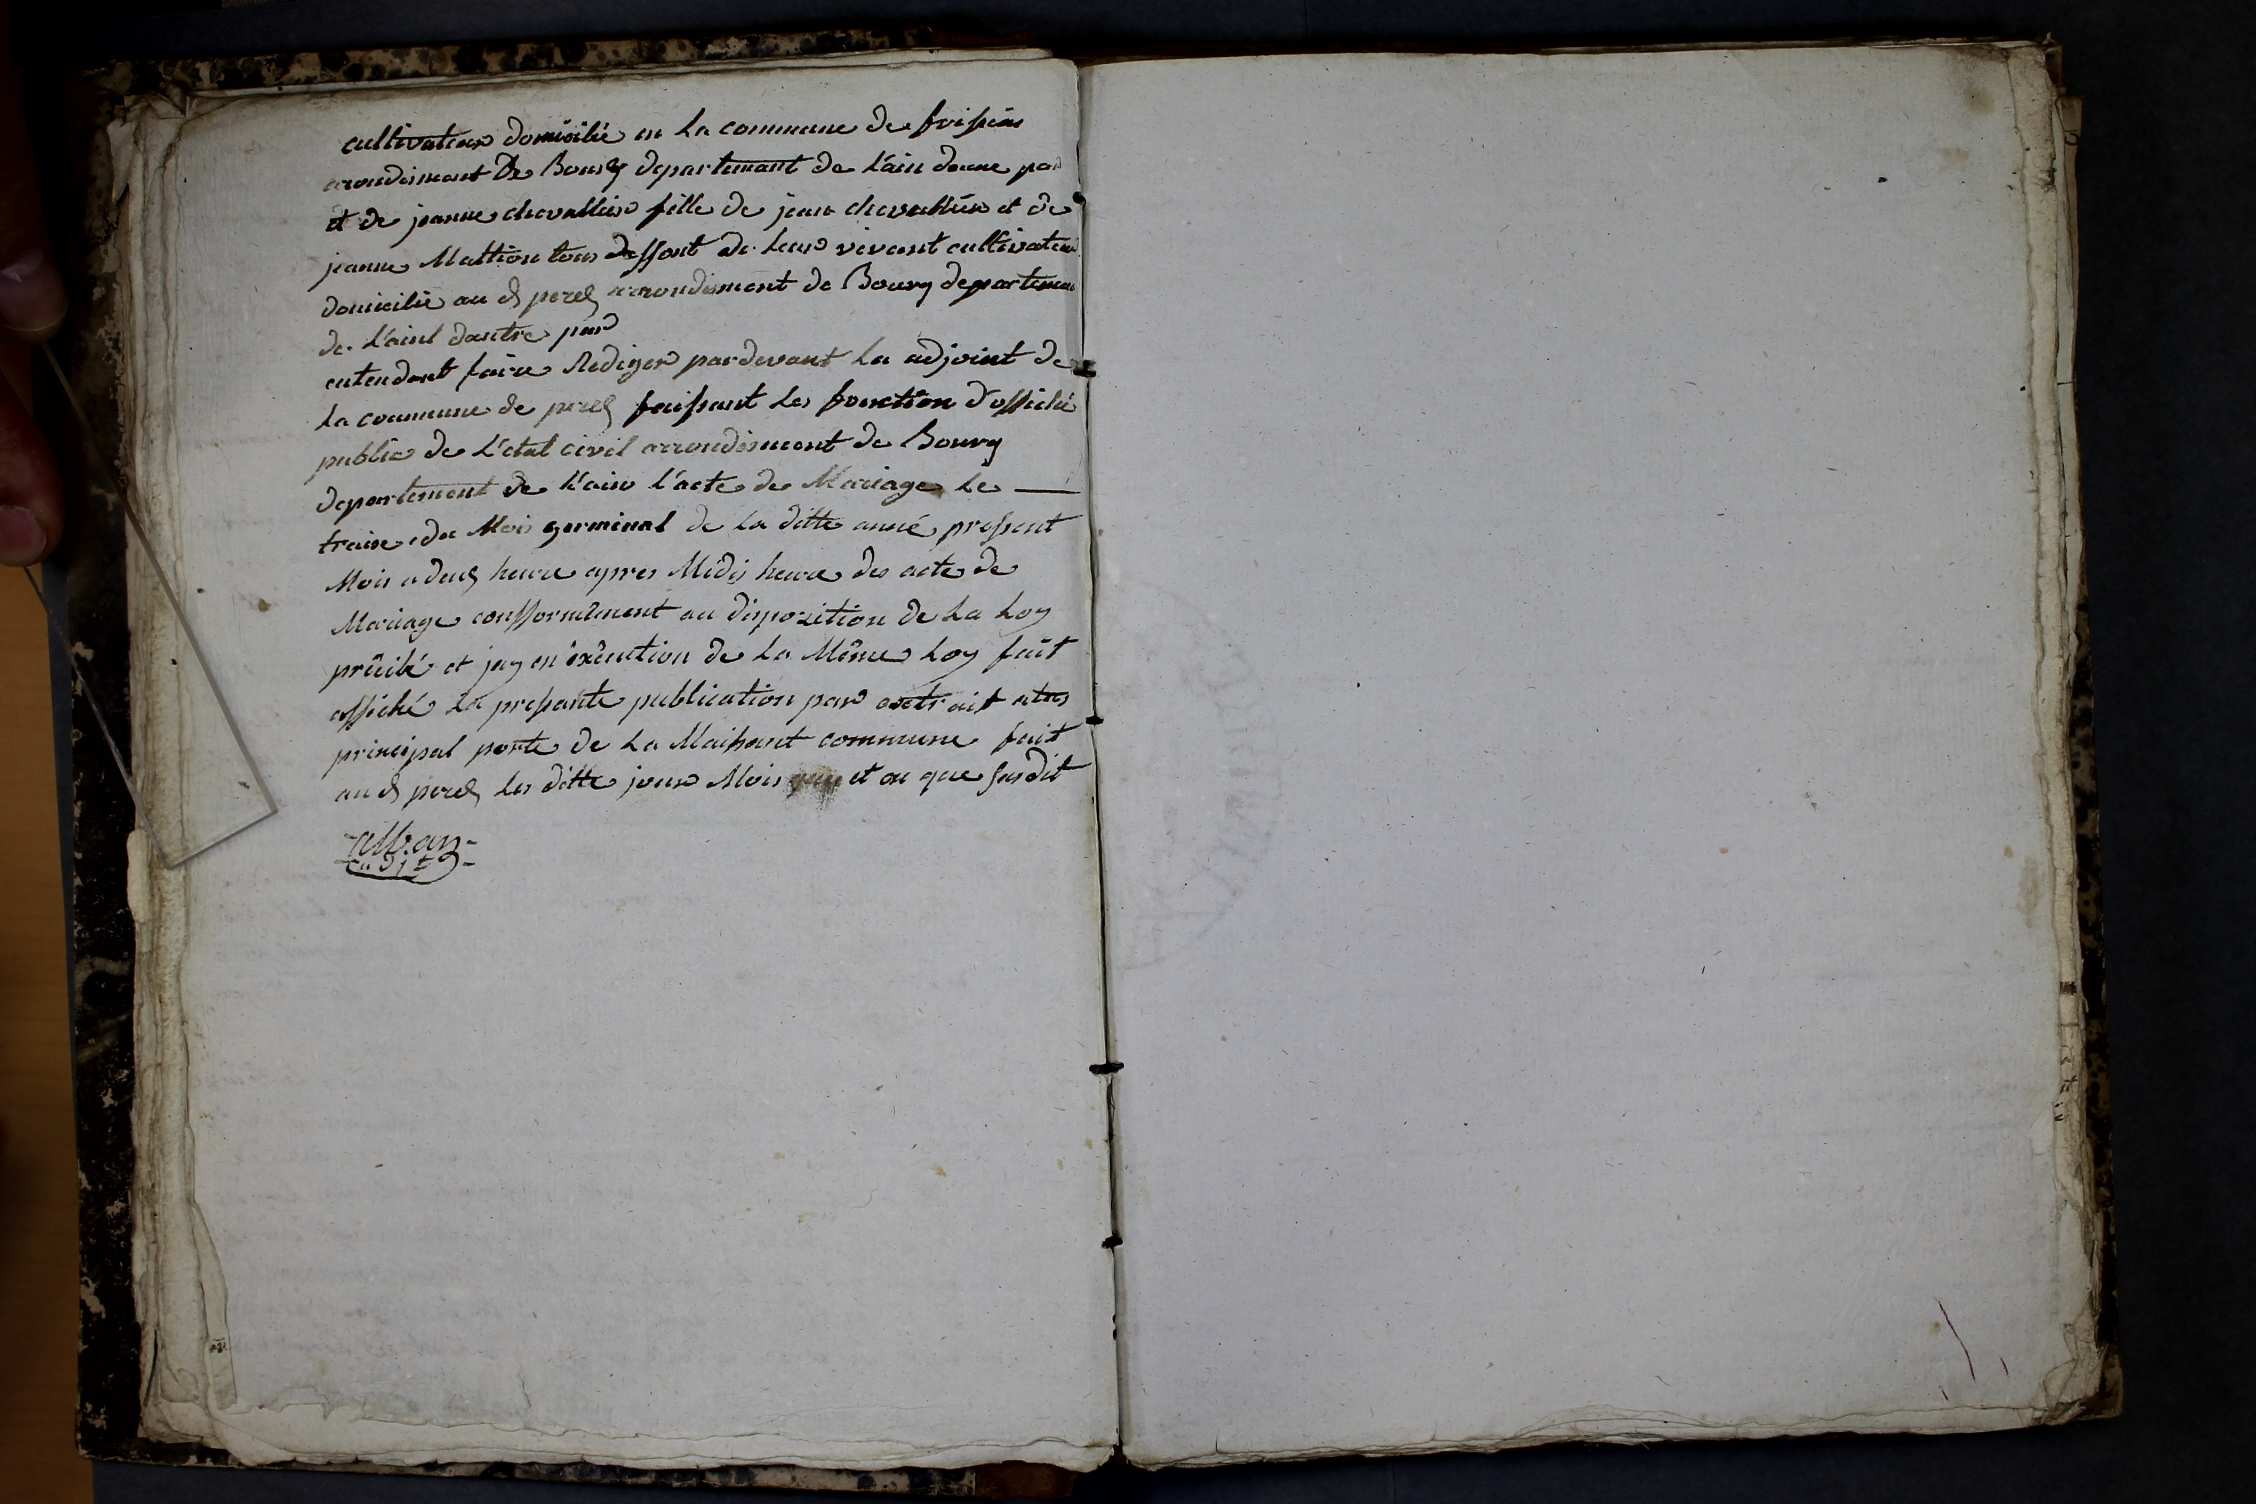 cultivateur domicilié en la commune de frissias
arondisment De Bourg departement de l'ain deune par
et de jeanne chevallier fille de jean chevallier et de
jeanne Mattion tous deffont de leur vivant cultivateur
domicilié au d perez arrondisment de Bourg departement
de l'ainl dautre par
entendant faire Rediger pardevant la adjoint de
la commune de perez faissant les fonction d'offiché
public de L'etat civil arrondisment de Bourg
departement de l'ain l'acte de Mariage le —
traise du Mois germinal de la ditte anné pressent
Mois a deuz heure apres Midis heure des acte de
Mariage confformement au disposition de La Loy
précité et jay en éxécution de la Même Loy fait
affiché la pressante publication par extrait a
principal porte de la Maissont commune fait
au d perez les ditte jour Mois et an que susdit
alban
adjt